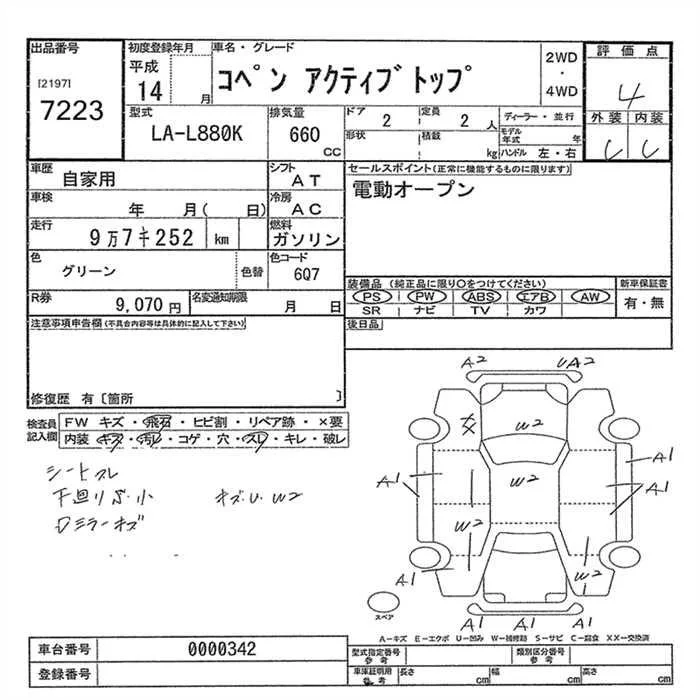 出品番号
[2197]
7223
初度登録年月
平成
14 月
車名・グレード
コペン アクティブトップ
2WD
・
4WD
評価点
4
型式
LA-L880K
排気量
660
CC
ドア 2
定員 2 人
形状
積載
kg
ディーラー・並行
モデル
年式 年
ハンドル 左・右
外装 内装
C C
車歴
自家用
シフト
AT
車検
年 月( 日)
冷房
AC
走行
9万7千252 km
燃料
ガソリン
色
グリーン
色替
色コード
6Q7
R券
9,070円
名変通知期限
月 日
セールスポイント(正常に機能するものに限ります)
電動オープン
装備品(純正品に限り○をつけてください)
PS PW ABS エアB AW
SR ナビ TV カワ
新車保証書
有・無
後日品
注意事項申告欄(不具合内容等は具体的に記入して下さい)
修復歴 有〔箇所 〕
検査員
記入欄
FW キズ・飛石・ヒビ割・リペア跡・×要
内装 キズ・汚レ・コゲ・穴・スレ・キレ・破レ
シートスレ
下廻りS小 キズU W2
Dミラーキズ
A2 UA2
XX
W2
A1
A1
A1
W2
W2
W2
A1
A1 A1 A1
スペア
A-キズ E-エクボ U-凹み W-補修跡 S-サビ C-腐食 XX-交換済
車台番号
0000342
登録番号
型式指定番号
参考
類別区分番号
参考
車庫証明用
参考
長さ cm
幅 cm
高さ cm